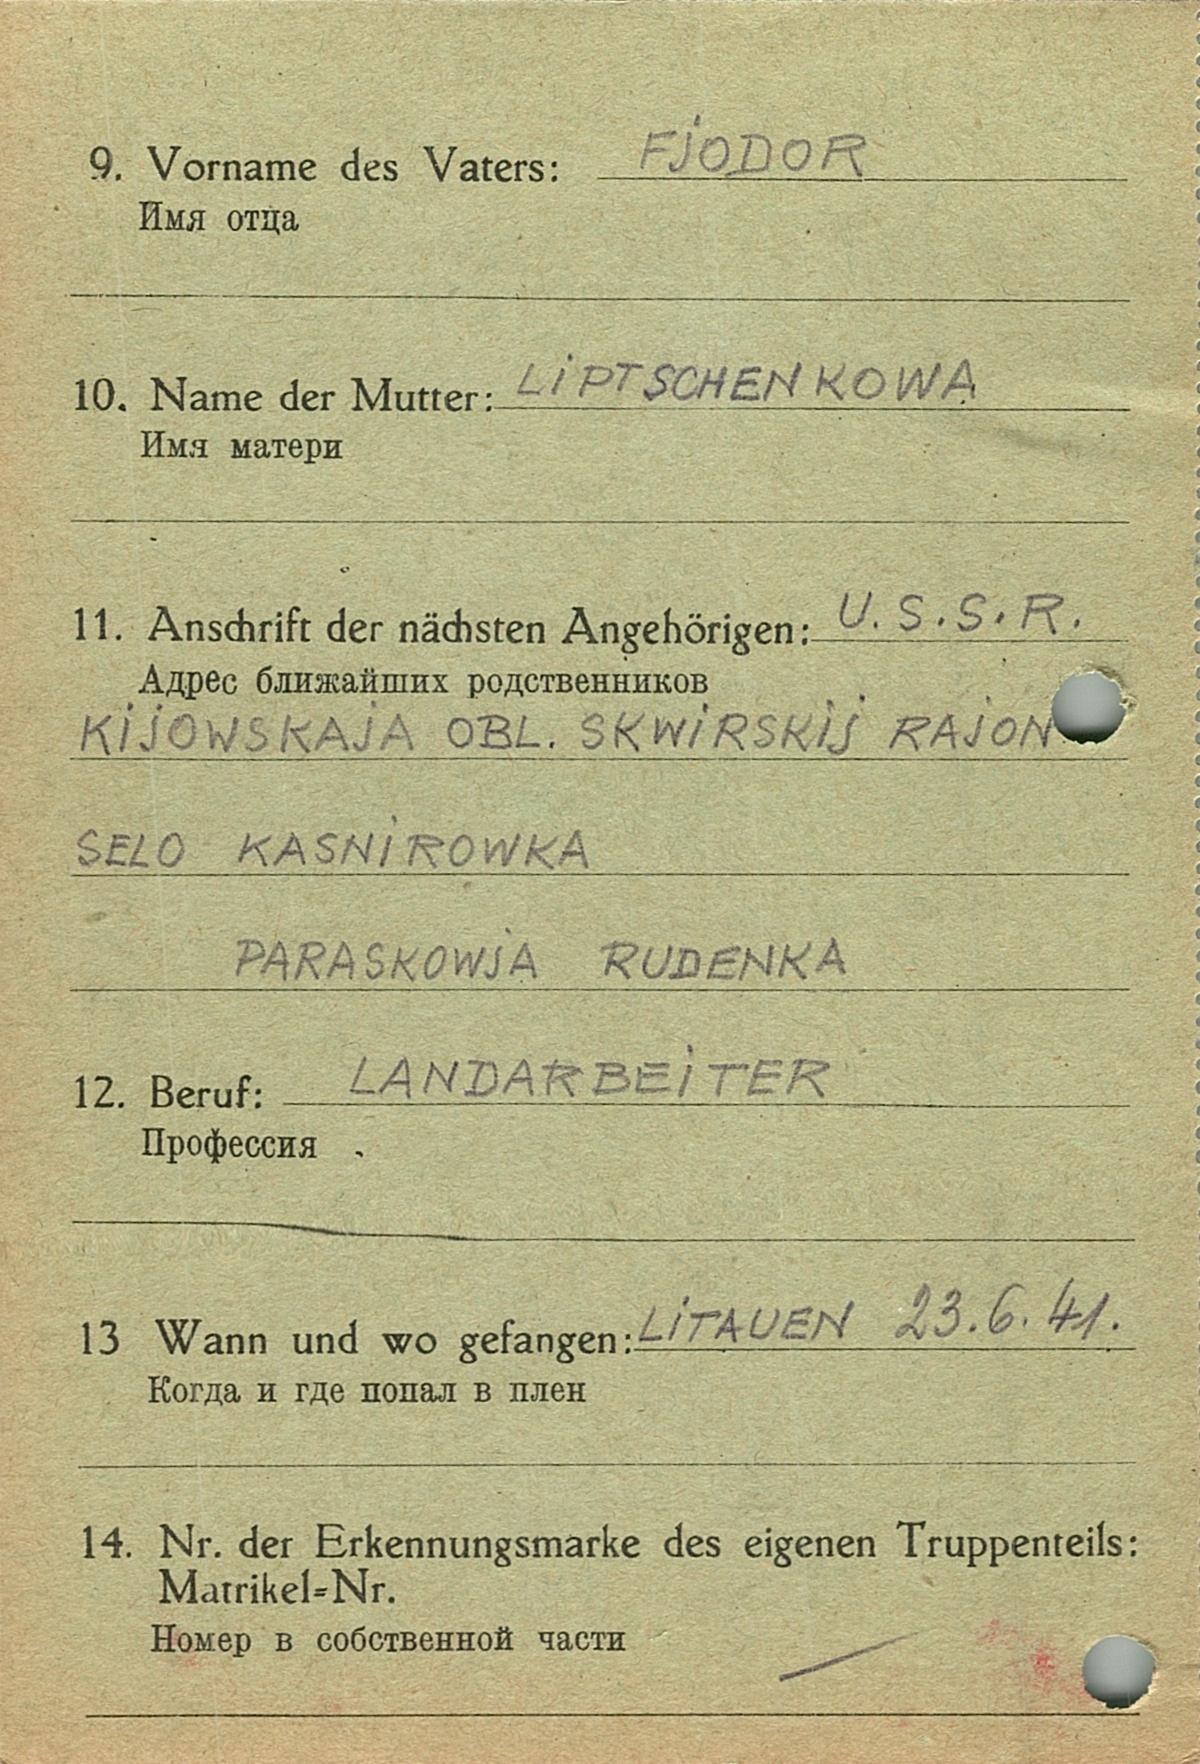 9. Vorname des Vaters: FJODOR
Имя отца
10. Name der Mutter: LIPTSCHENKOWA
Имя матери
11. Anschrift der nächsten Angehörigen: U.S.S.R.
Адрес ближайших родственников
KIJOWSKAJA OBL. SKWIRSKIJ RAJON
SELO KASNIROWKA
PARASKOWJA RUDENKA
12. Beruf: LANDARBEITER
Профессия
13 Wann und wo gefangen: LITAUEN 23.6.41.
Когда и где попал в плен
14. Nr. der Erkennungsmarke des eigenen Truppenteils:
Matrikel=Nr.
Номер в собственной части